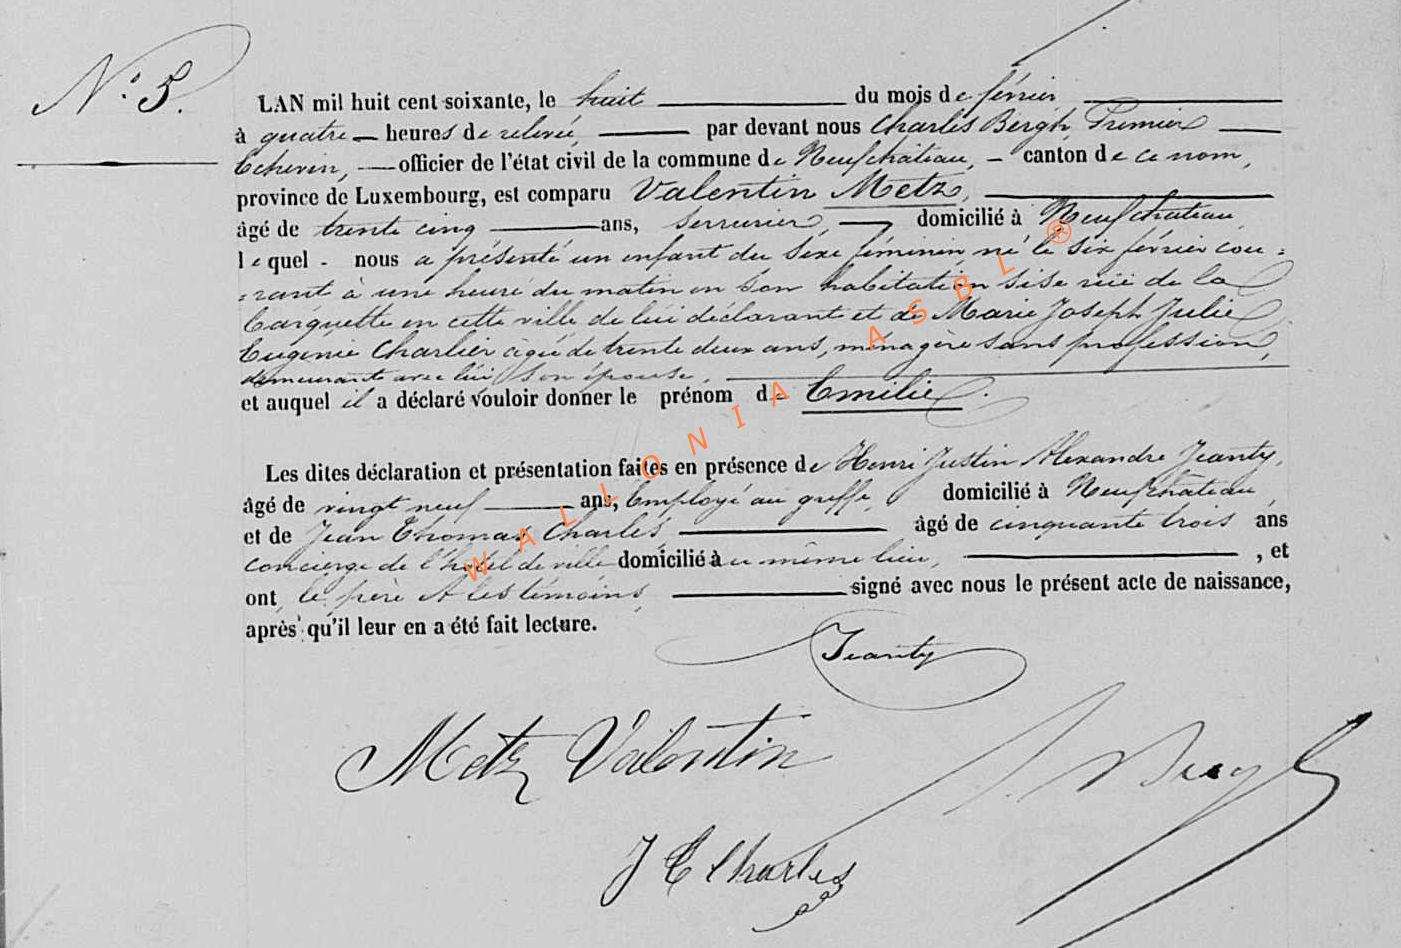 N.° 5.
LAN mil huit cent soixante, le huit du mois de février
à quatre heures de relevée, par devant nous Charles Bergh, Premier
Echevin, officier de l'état civil de la commune de Neufchâteau, canton de ce nom,
province de Luxembourg, est comparu Valentin Metz,
âgé de trente cinq ans, serrurier, domicilié à Neufchateau
lequel nous a présenté un enfant du sexe féminin né le six février cou=
=rant à une heure du matin en son habitation sise rue de la
en cette ville de lui déclarant et de Marie Joseph Julie
Eugénie Charlier agée de trente deux ans, ménagère sans profession,
demeurante avec lui, son épouse,
et auquel il a déclaré vouloir donner le prénom de Emilie.
Les dites déclaration et présentation faites en présence de Henri Justin Alexandre Jeanty,
âgé de vingt neuf ans, Employé au greffe, domicilié à Neufchâteau,
et de Jean Thomas Charles, âgé de cinquante trois ans
concierge de l'hotel de ville domicilié au même lieu, , et
ont, le père et les témoins, signé avec nous le présent acte de naissance,
après qu'il leur en a été fait lecture.
Jeanty
Metz Valentin
Bergh
J T Charles
WALLONIA ASBL ®